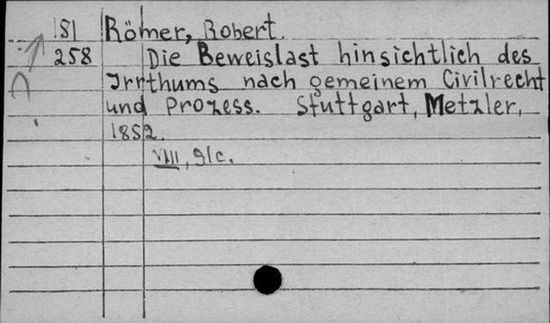 181 Römer, Robert.
258 Die Beweislast hinsichtlich des
Irrthums nach gemeinem Civilrecht
und Prozess. Stuttgart, Metzler,
1852.
VIII, 91c.